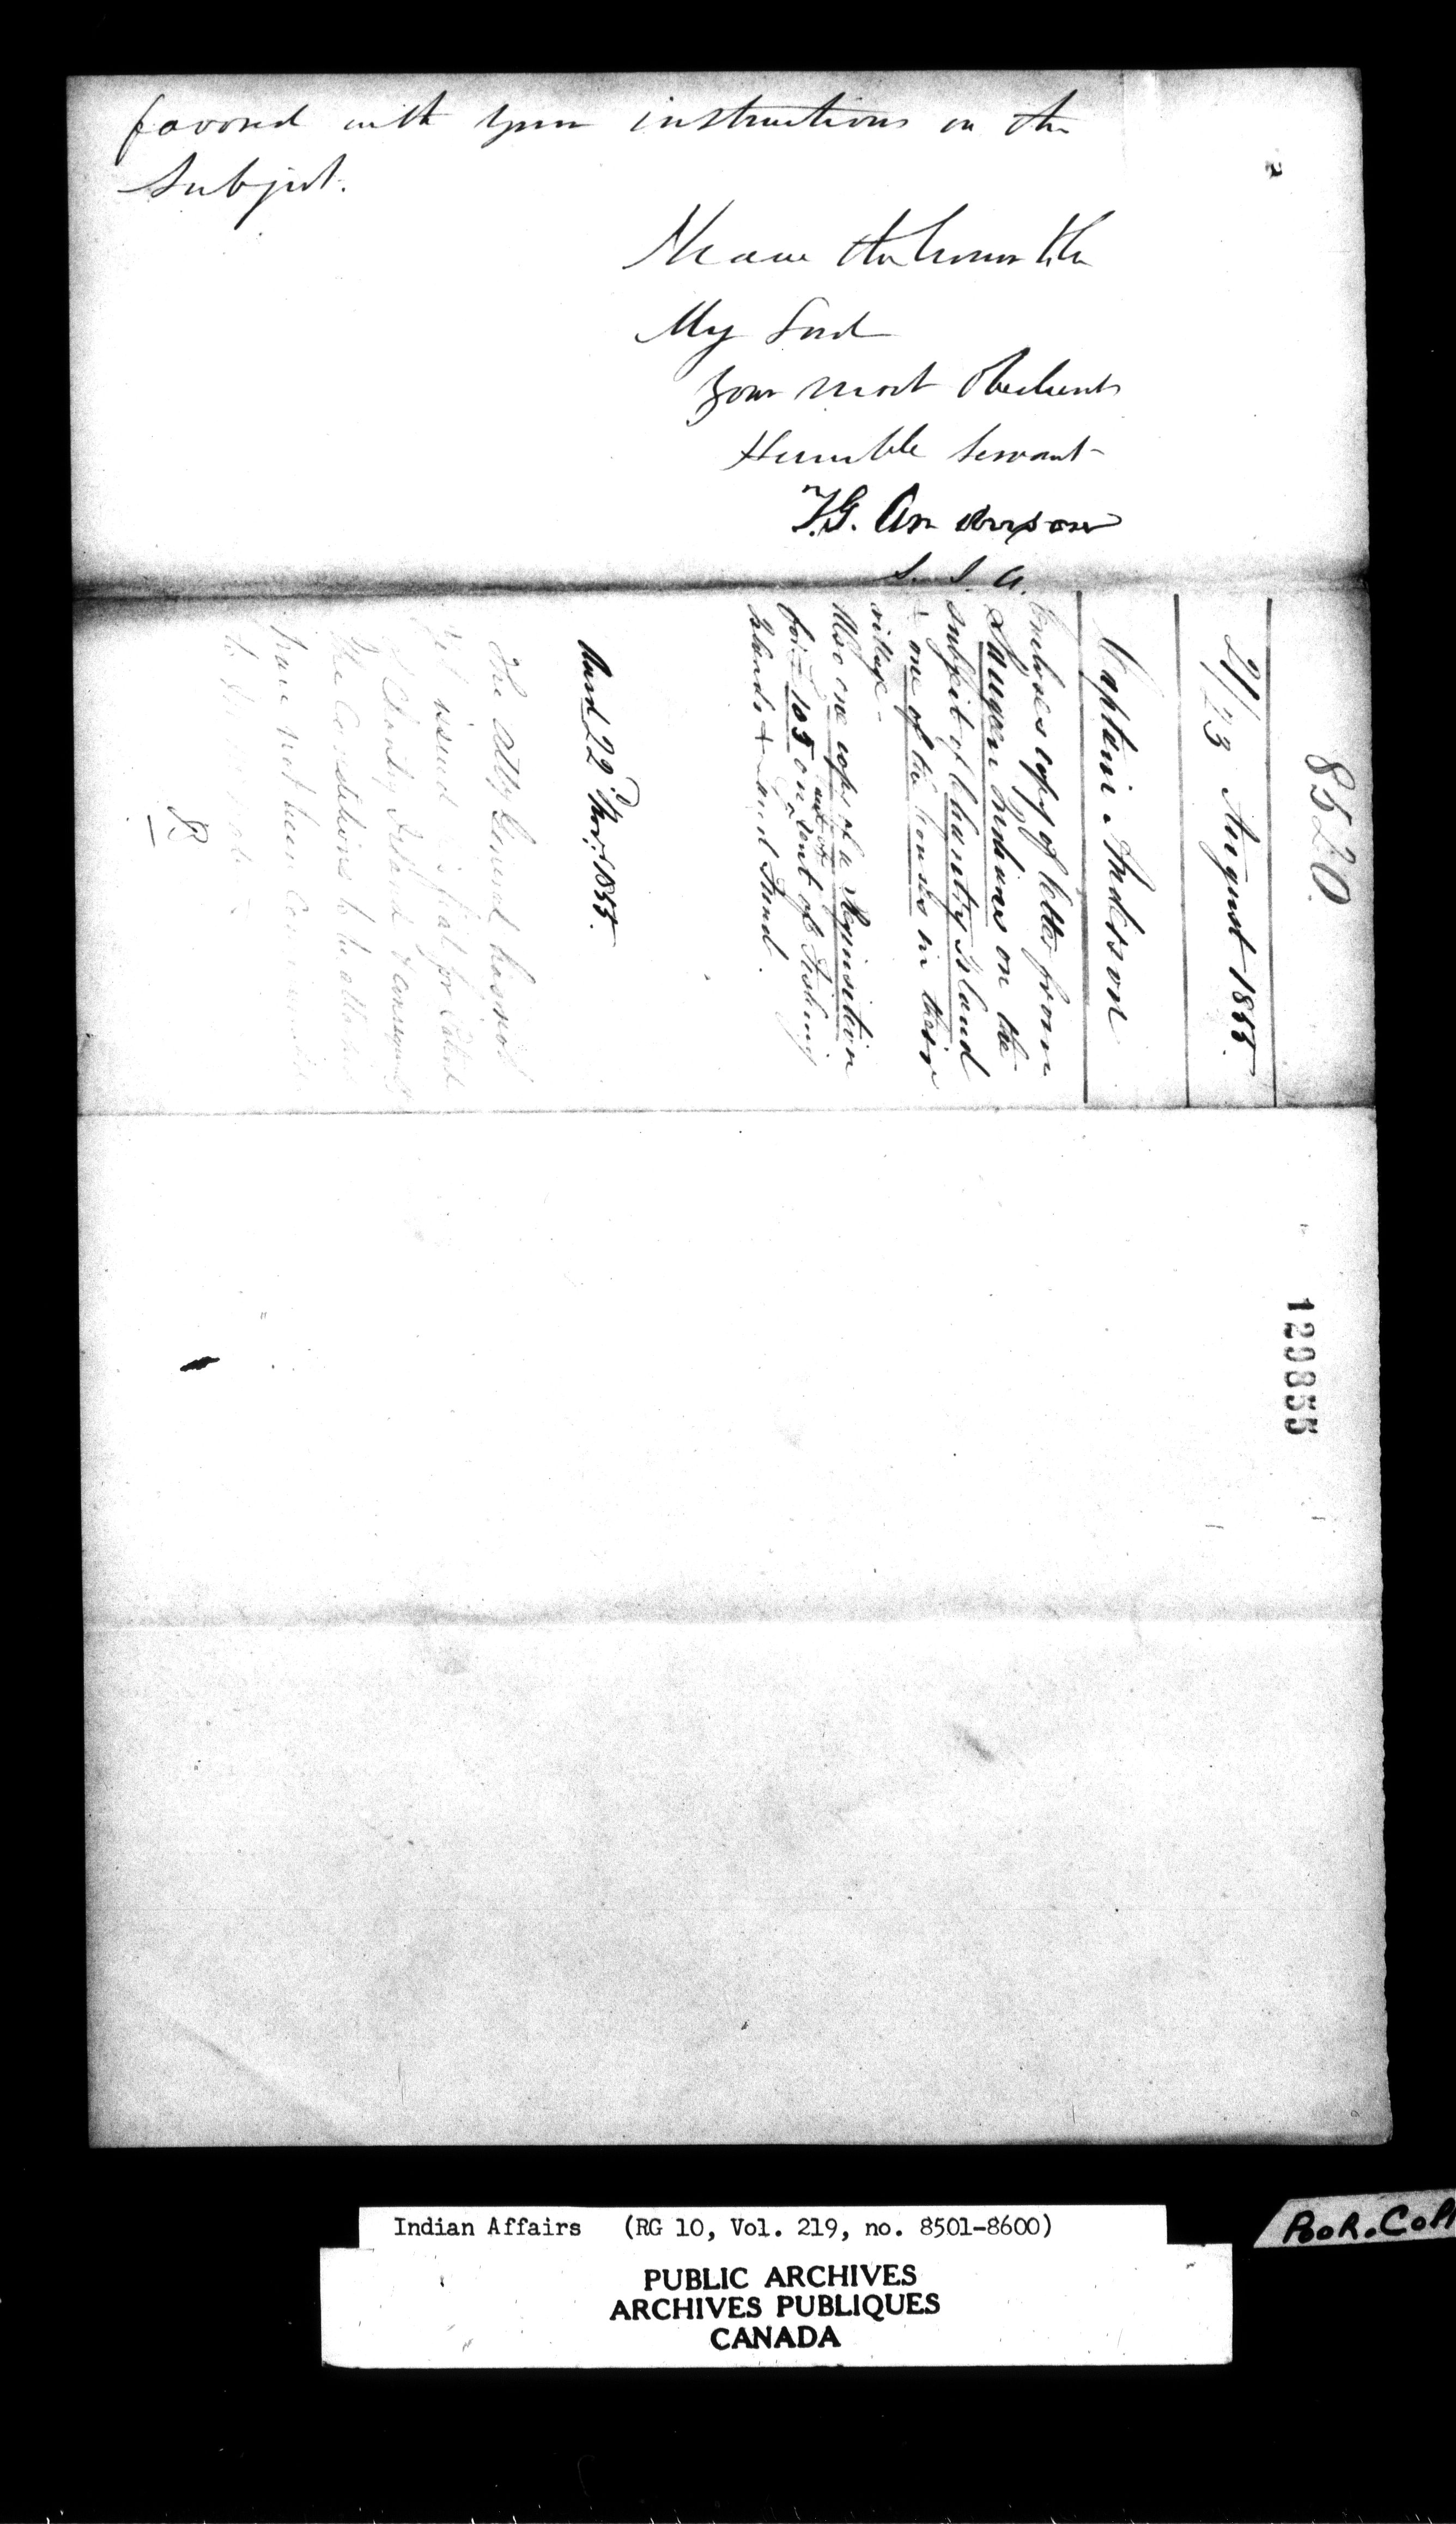 favored with your instructions on the
Subject.
I have the honor to be
My Lord
Your most Obedient
Humble Servant
T.G. Anderson
S. I. A.
8520.
21/23 August 1855.
Captain Anderson
Encloses copy of letter from
Saugeen Indians on the
subject of Chantry Island
& one of the houses in their
village-
Also one copy of a Requisition
for 105 on
out of
rent of Fishing
Islands & Land Fund.
Ansd 22d Novr 1855.
The Atty General has not
yet issued his fiat for Patent
of Chantry Island & consequently
the Conditions to be attached
have not been
120855
Indian Affairs (RG 10, Vol. 219, no. 8501-8600)
PUBLIC ARCHIVES
ARCHIVES PUBLIQUES
CANADA